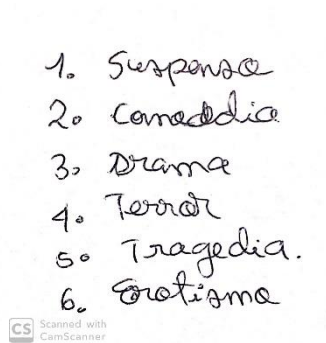 1. Suspenso
2. Comeddia
3. Drama
4. Terror
5. Tragedia.
6. Erotismo
CS Scanned with
CamScanner